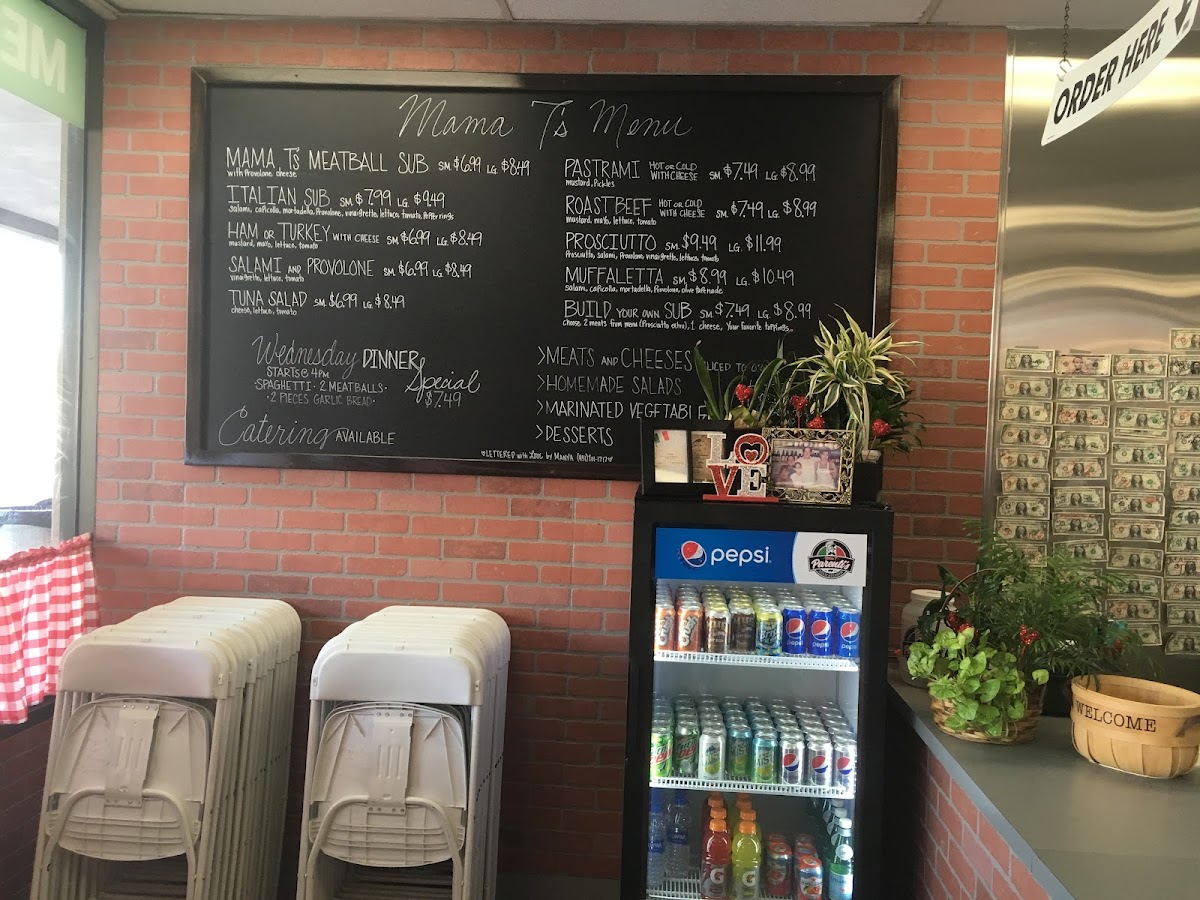 ME
ORDER HERE
Mama T's Menu
MAMA T'S MEATBALL SUB SM. $6.99 LG. $8.49
with Provolone cheese
ITALIAN SUB SM. $7.99 LG. $9.49
salami, capicolla, mortadella, Provolone, vinaigrette, lettuce, tomato, Pepper rings
HAM OR TURKEY WITH CHEESE SM. $6.99 LG. $8.49
mustard, mayo, lettuce, tomato
SALAMI AND PROVOLONE SM. $6.99 LG. $8.49
vinaigrette, lettuce, tomato
TUNA SALAD SM. $6.99 LG. $8.49
cheese, lettuce, tomato
PASTRAMI HOT OR COLD WITH CHEESE SM. $7.49 LG. $8.99
mustard, Pickles
ROAST BEEF HOT OR COLD WITH CHEESE SM. $7.49 LG. $8.99
mustard, mayo, lettuce, tomato
PROSCIUTTO SM. $9.49 LG. $11.99
Prosciutto, salami, Provolone, vinaigrette, lettuce, tomato
MUFFALETTA SM. $8.99 LG. $10.49
salami, capicolla, mortadella, Provolone, olive tapenade
BUILD YOUR OWN SUB SM. $7.49 LG. $8.99
choose 2 meats from menu (Prosciutto extra), 1 cheese, Your favorite toppings...
Wednesday DINNER Special
STARTS @ 4PM
SPAGHETTI • 2 MEATBALLS •
• 2 PIECES GARLIC BREAD •
$7.49
Catering AVAILABLE
>MEATS AND CHEESES SLICED TO
>HOMEMADE SALADS
>MARINATED VEGETABL
>DESSERTS
LETTERED with Love by MANYA
LOVE
pepsi
Parenti's
pepsi
pepsi
pepsi
G
G
WELCOME